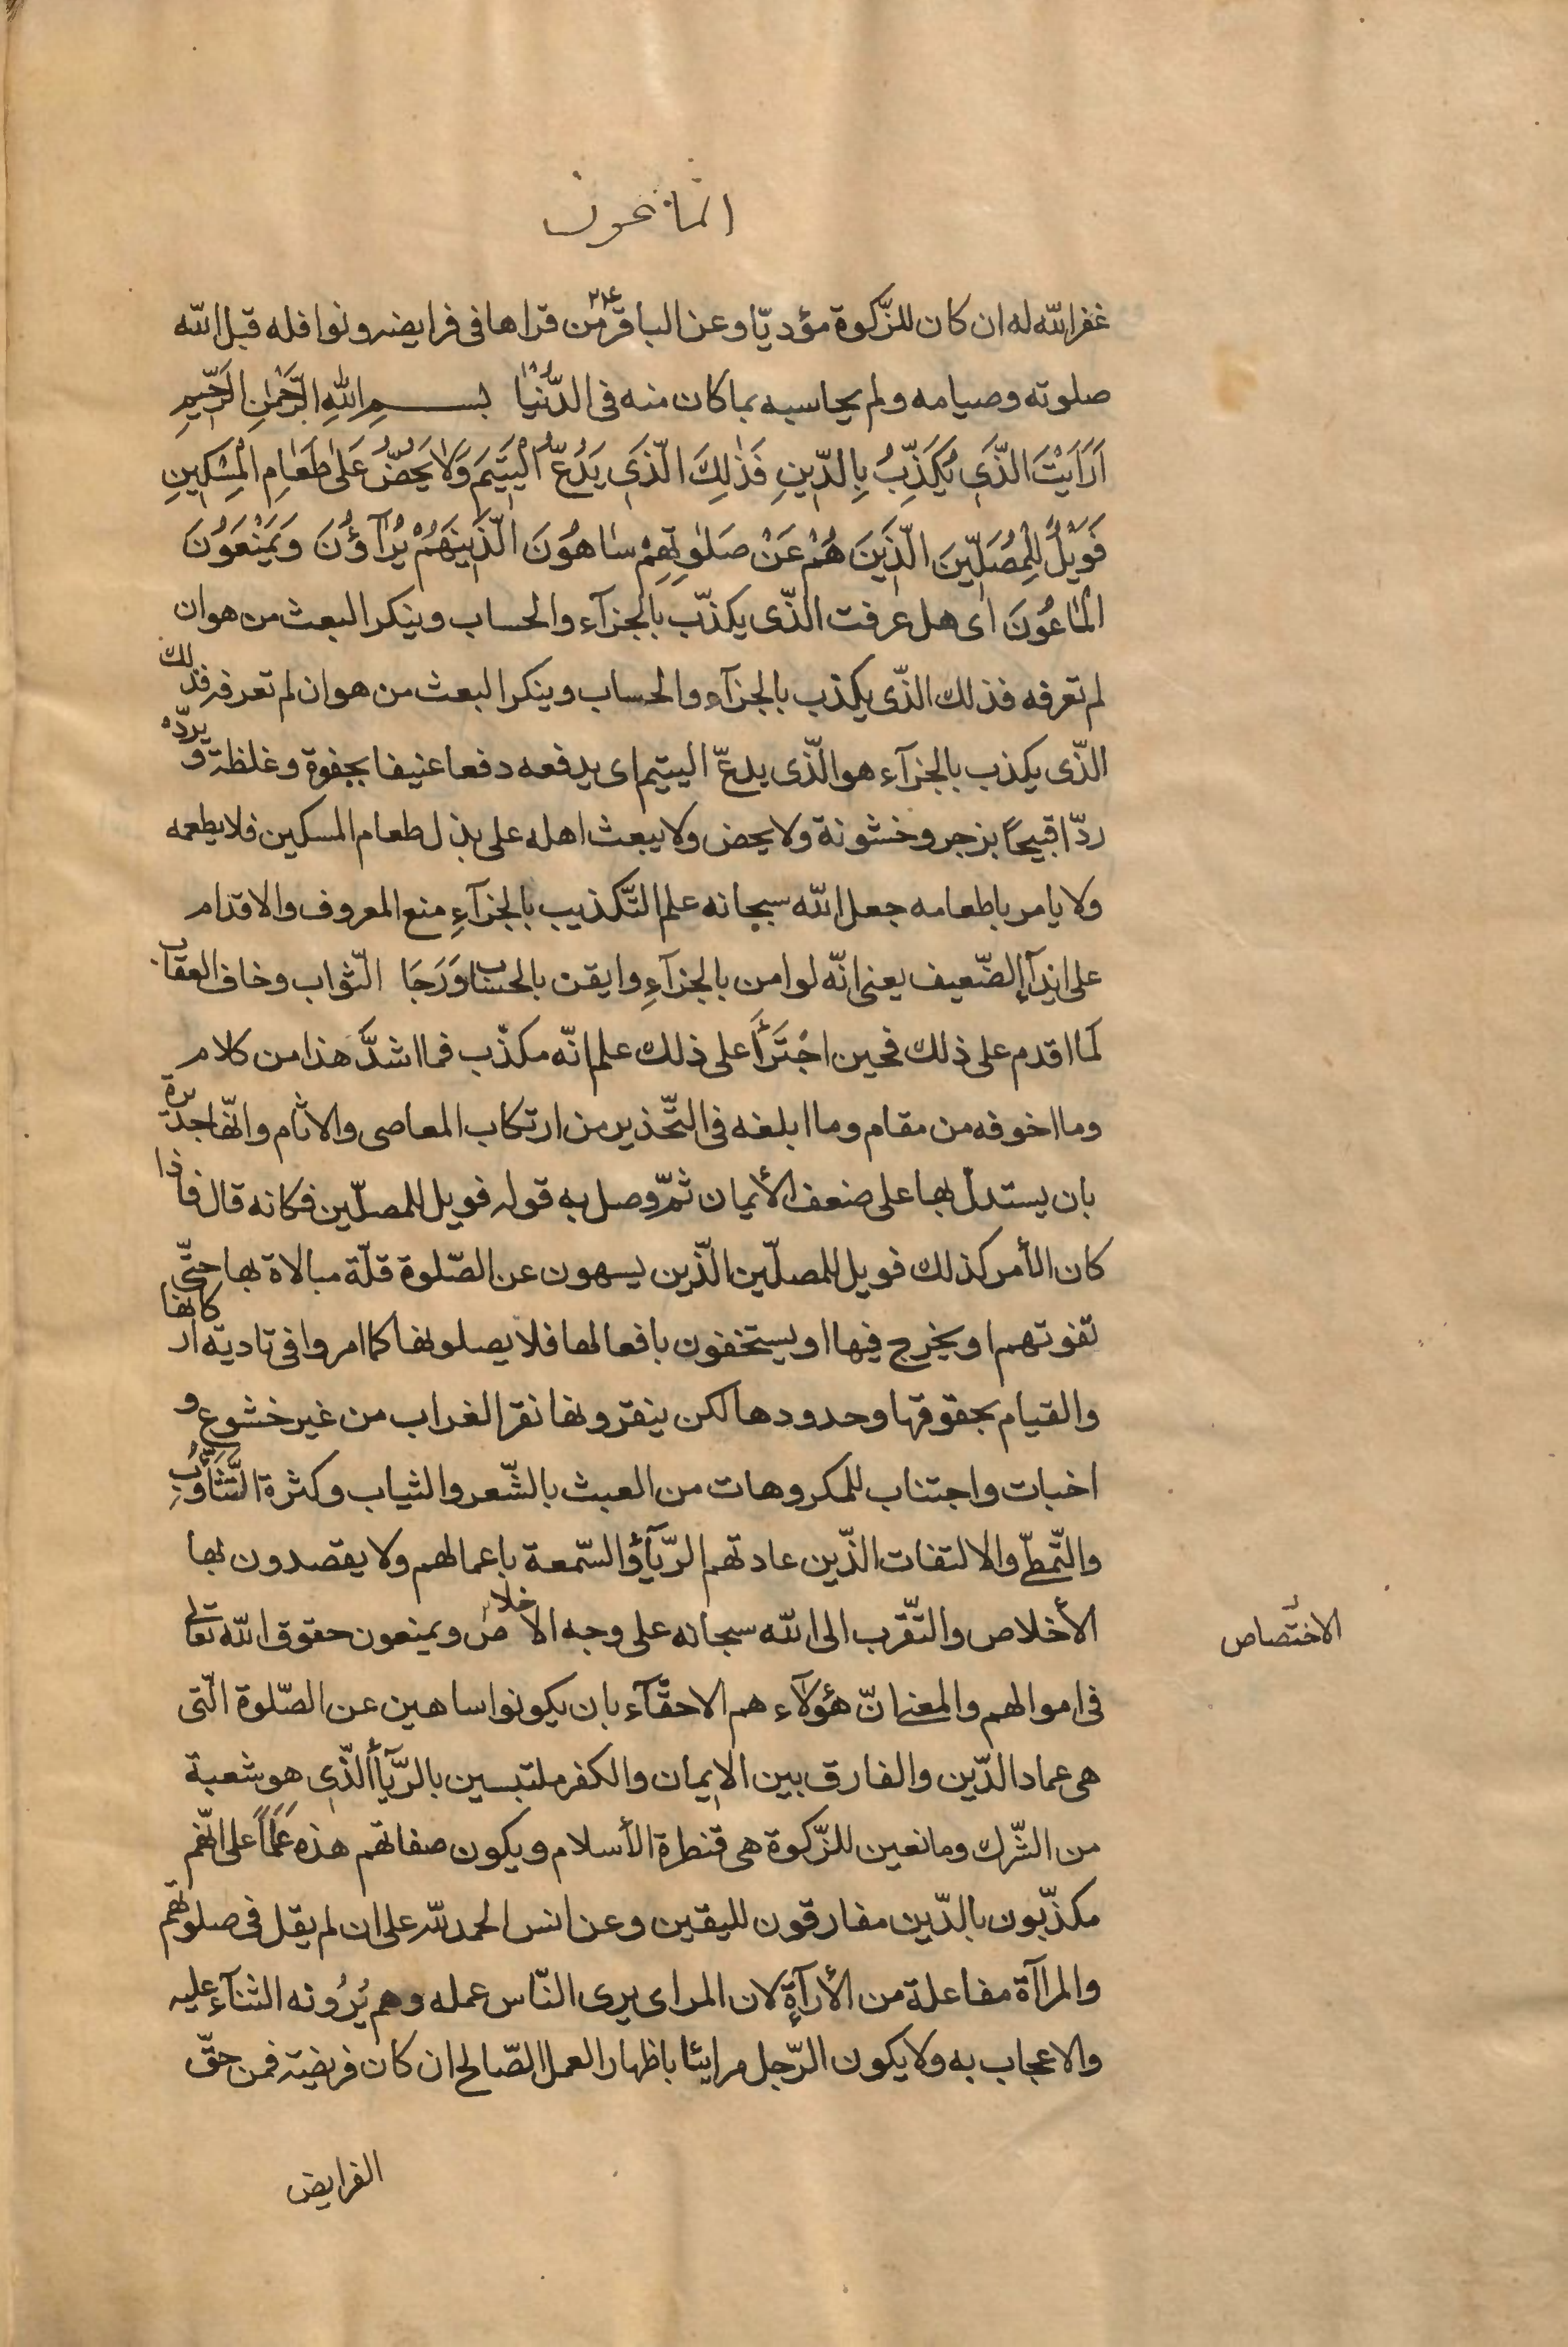 الماعون
غفر الله له ان كان للزّكوة مؤديّا وعن الباقر ع م من قراها فى فرايضه ونوافله قبل الله
صلوته وصيامه ولم يحاسبه بما كان منه فى الدُّنْيٰا بسم اللهِ الرَّحْمٰنِ الرَّحِيمِ
اَرَاَيْتَ الَّذِى يُكَذِّبُ بِالدِّينِ فَذٰلِكَ الَّذِى يَدُعُّ الْيَتِيمَ وَلٰا يَحُضُّ عَلىٰ طَعٰامِ الْمِسْكِينِ
فَوَيْلٌ لِلْمُصَلِّينَ الَّذِينَ هُمْ عَنْ صَلٰوتِهِمْ سٰاهُونَ الَّذِينَ هُمْ يُرٰآؤُنَ وَيَمْنَعُونَ
الْمٰاعُونَ اى هل عرفت الّذى يكذّب بالجزآء والحساب وينكر البعث من هو ان
لم تعرفه فذلك الذّى يكذب بالجزآء والحساب وينكر البعث من هو ان لم تعرفه فذلك
الذّى يكذب بالجزآء هو الّذى يدعّ اليتيم اى يدفعه دفعا عنيفا بجفوة وغلظة ويردّه
ردّا قبيحًا بزجر وخشونة ولا يحض ولا يبعث اهله على بذل طعام المسكين فلا يطعمه
ولا يامر باطعامه جعل الله سبحانه علم التّكذيب بالجزآءِ منع المعروف والاقدام
على ايذآء الضّعيف يعنى انّه لو امن بالجزآءِ وايقن بالحساب وَرَجَا الثّواب وخاف العقاب
لما اقدم على ذلك فحين اجْتَرَأَ على ذلك علم انّه مكذّب فما اشدَّ هذا من كلام
وما اخوفه من مقام وما ابلغه فى التّحذير من ارتكاب المعاصى والاثام وانّها جديرة
بان يستدلّ بها على ضعف الأيمان ثمّ وصل به قوله فويل للمصلّين فكانه قال فاذا
كان الأمر كذلك فويل للمصلّين الّذين يسهون عن الصّلوة قلّة مبالاة بها حتّى
تفوتهم او يخرج فيها او يستخفون بافعالها فلا يصلونها كما امروا فى تادية اركانها
والقيام بحقوقها وحدودها لكن ينقرونها نقر الغراب من غير خشوع و
اخبات واجتناب للمكروهات من العبث بالشّعر والثياب وكثرة التَّثَاؤُبِ
والتّمطّى والالتفات الذّين عادتهم الرّيآءُ والسّمعة باعمالهم ولا يقصدون بها
الأخلاص والتّقرب الى الله سبحانه على وجه الاخلاص ويمنعون حقوق الله تعالى
الاختصاص
فى اموالهم والمعنى انّ هؤلآء هم الاحقّآء بان يكونوا ساهين عن الصّلوة الّتى
هى عماد الدّين والفارق بين الايمان والكفر ملتبسين بالرّيآء الّذى هو شعبة
من الشّرك ومانعين للزّكوة هى قنطرة الأسلام ويكون صفاتهم هذه عَلَمًا على انّهم
مكذّبون بالدّين مفارقون لليقين وعن انس الحمد لله على ان لم يقل فى صلوتهم
والمراآة مفاعلة من الأرآءةِ لان المراى يرى النّاس عمله وهم يُرُونه الثنآء عليه
والاعجاب به ولا يكون الرّجل مرايئا باظهار العمل الصّالح ان كان فريضة فمن حقّ
الفرايض